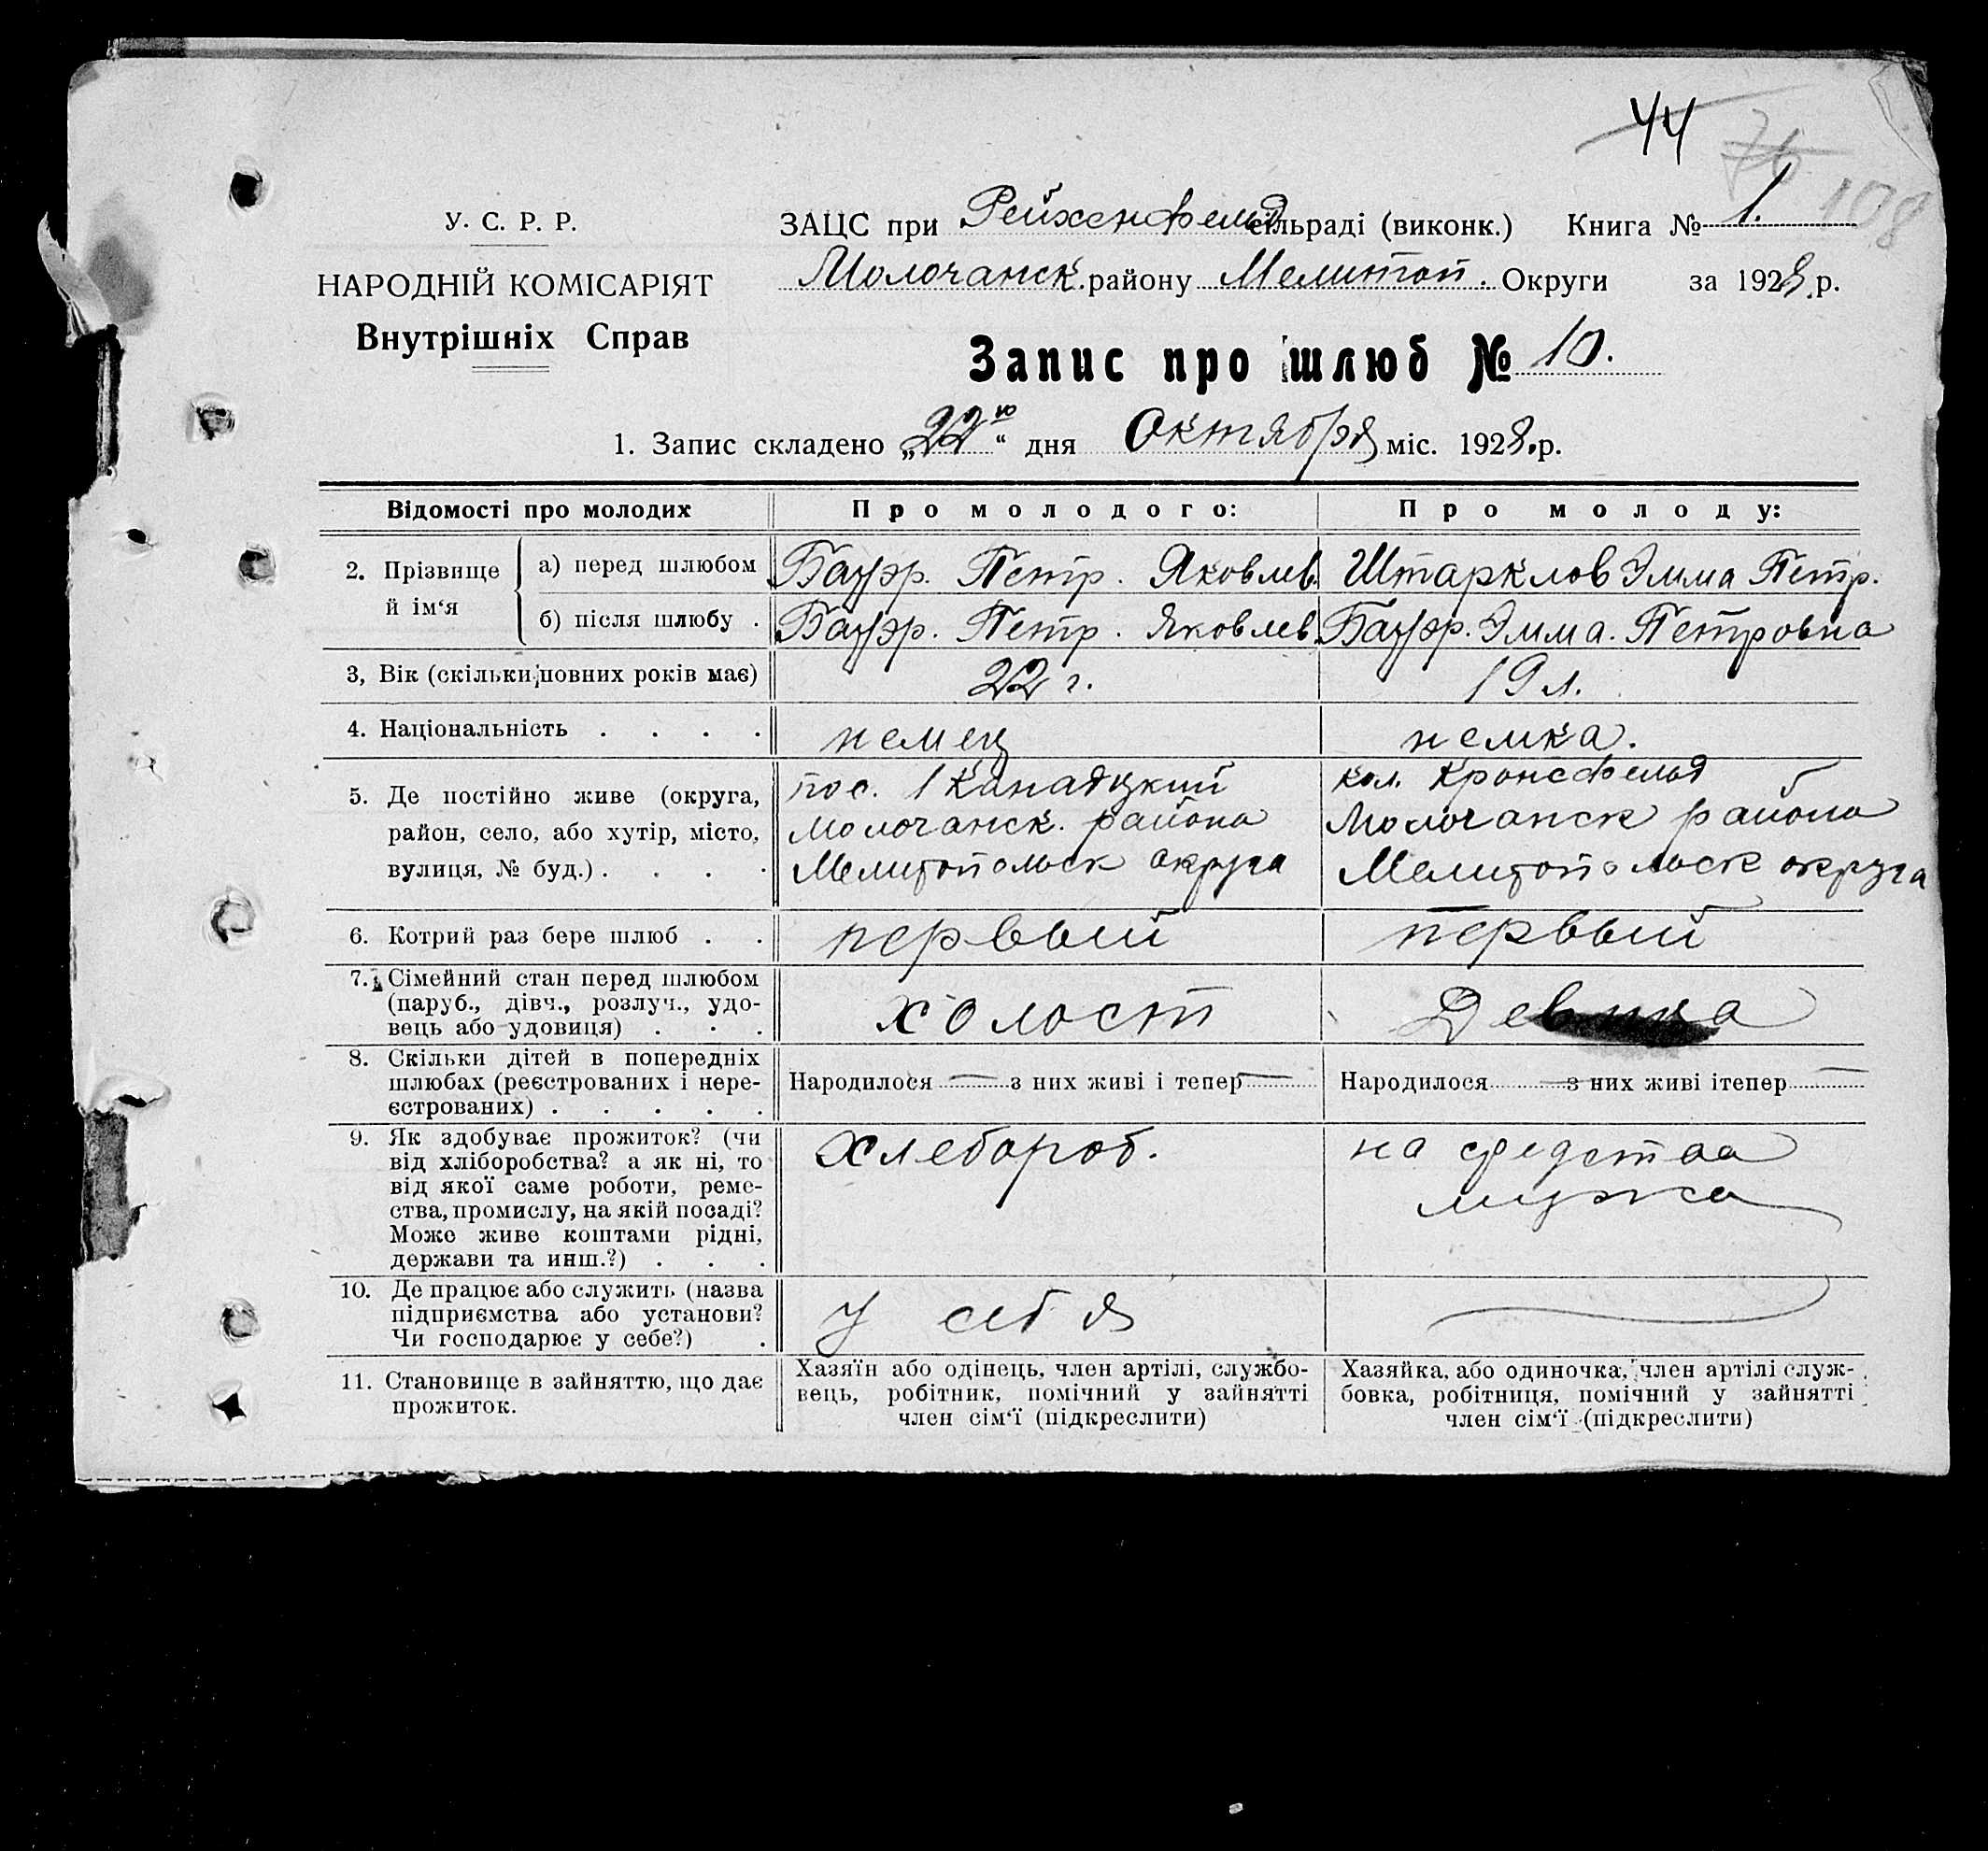 44
76
108
У. С. Р. Р.
НАРОДНІЙ КОМІСАРІЯТ
Внутрішніх Справ
ЗАЦС при Рейхенфельд сільраді (виконк.) Книга № 1.
Молочанск. району Мелитоп. Округи за 1928 р.
Запис про шлюб № 10.
1. Запис складено „22го“ дня Октября міс. 1928 р.
Відомості про молодих
Про молодого:
Про молоду:
2. Прізвище й ім‘я
а) перед шлюбом
Бауэр. Петр. Яковлев.
Штарклов Эмма Петр.
б) після шлюбу .
Бауэр. Петр. Яковлев.
Бауэр. Эмма. Петровна
3, Вік (скільки повних років має)
22 г.
19 л.
4. Національність . . . .
немец
немка.
5. Де постійно живе (округа,
район, село, або хутір, місто,
вулиця, № буд.) . . . .
пос. 1 Канадцкий
Молочанск. района
Мелитопольск округа
кол. Кронсфельд
Молочанск района
Мелитопольск округа
6. Котрий раз бере шлюб . .
первый
первый
7. Сімейний стан перед шлюбом
(паруб., дівч., розлуч., удо-
вець або удовиця) . . .
холост
Девица
8. Скільки дітей в попередніх
шлюбах (реєстрованих і нере-
єстрованих) . . . . .
Народилося — з них живі і тепер —
Народилося — з них живі ітепер —
9. Як здобуває прожиток? (чи
від хліборобства? а як ні, то
від якої саме роботи, реме-
ства, промислу, на якій посаді?
Може живе коштами рідні,
держави та инш.?) . . .
хлебороб.
на средства
мужа
10. Де працює або служить (назва
підприємства або установи?
Чи господарює у себе?) .
у себя
—
11. Становище в зайняттю, що дає
прожиток.
Хазяїн або одінець, член артілі, службо-
вець, робітник, помічний у зайнятті
член сім‘ї (підкреслити)
Хазяйка, або одиночка, член артілі служ-
бовка, робітниця, помічний у зайнятті
член сім‘ї (підкреслити)